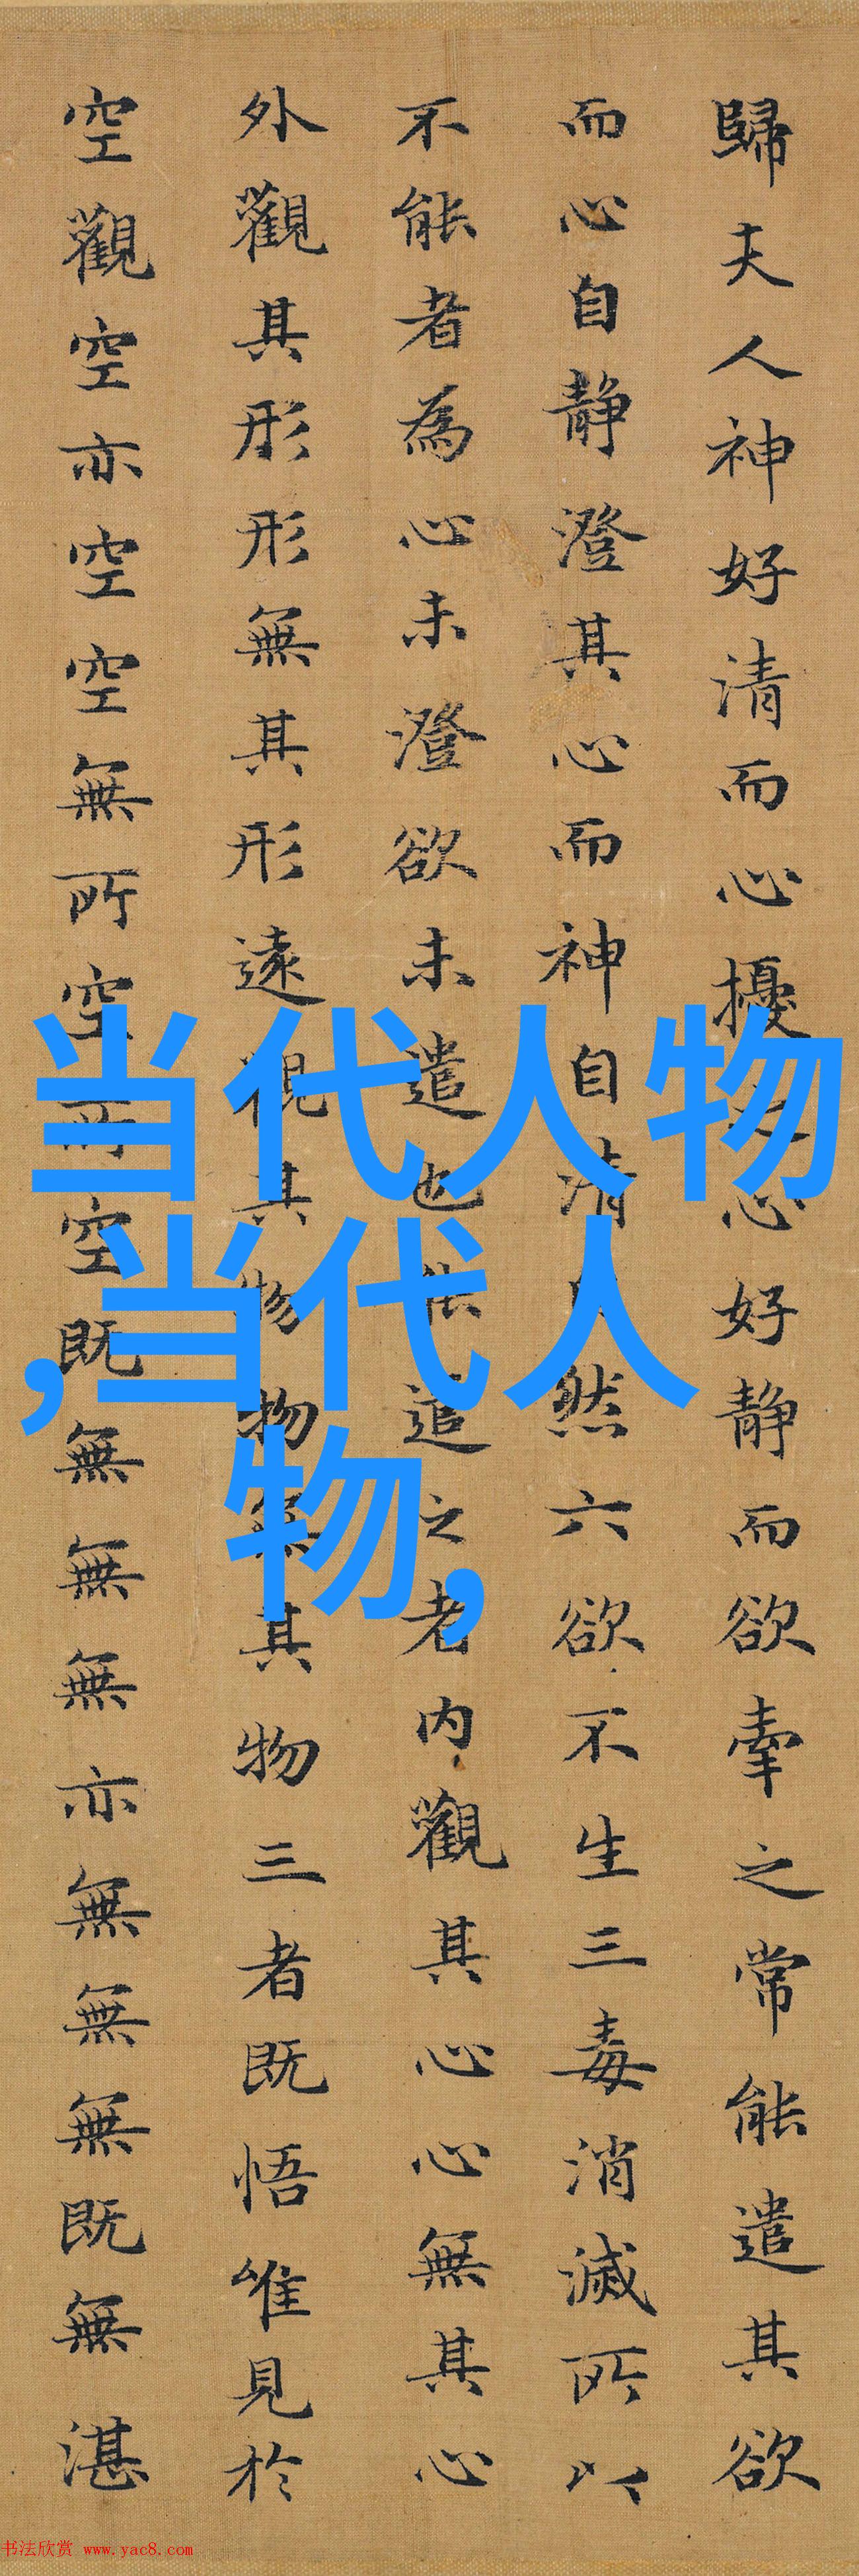 歸夫人神好清而心擾之心好静而欲牽之常能遣其欲
而心自静澄其心而神自清然六欲不生三毒消滅所以
不能者為心未澄欲未遣也能遣之者内觀其心心無其心
外觀其形形無其形遠觀其物物無其物三者既悟唯見於
空觀空亦空空無所空所空既無無無亦無無無既無湛
当代人物
,当代人
物,
书法欣赏 www.yac8.com